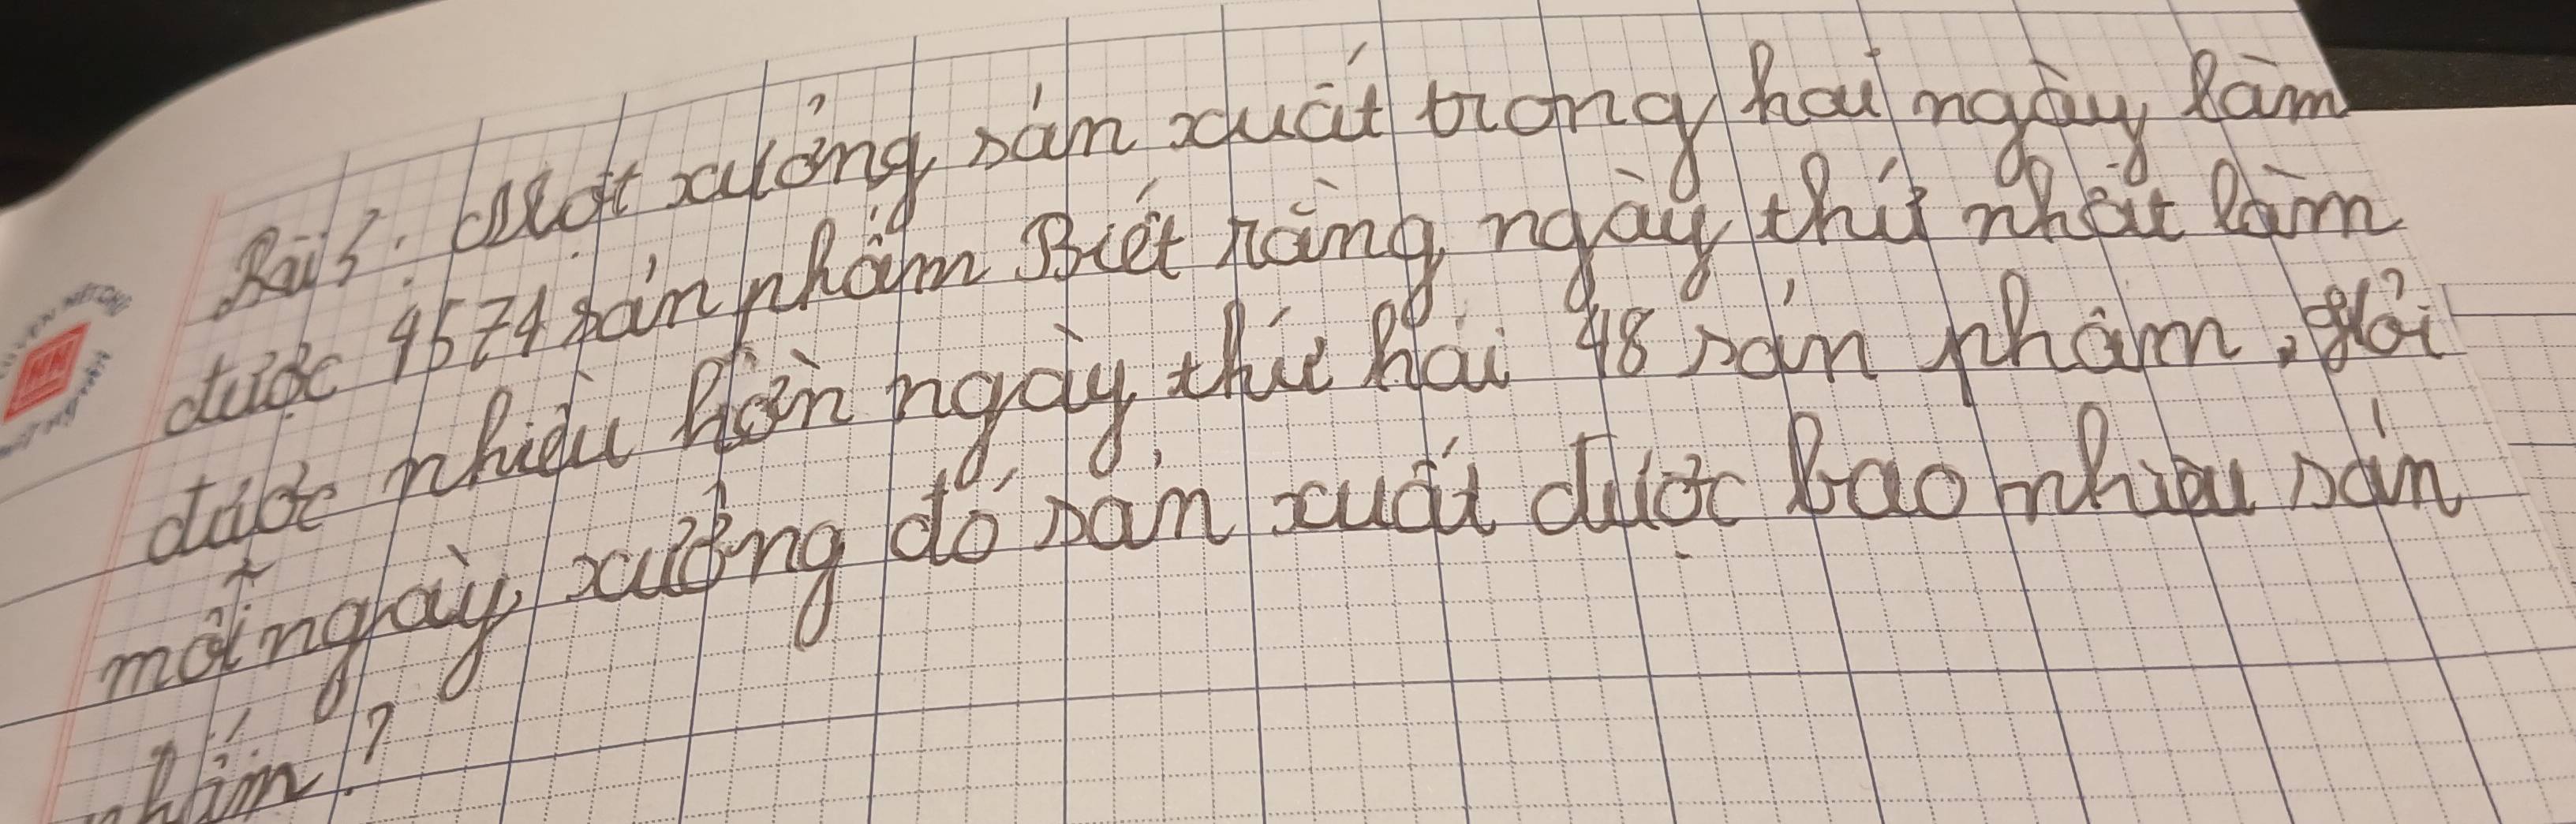 Bài 5: Một xưởng sản xuất trong hai ngày làm
được 4574 sản phẩm Biết rằng ngày thứ nhất làm
được nhiều hơn ngày thứ hai 48 sản phẩm, Hỏi
mỗi ngày xưởng đó sản xuất được bao nhiêu sản
phẩm?